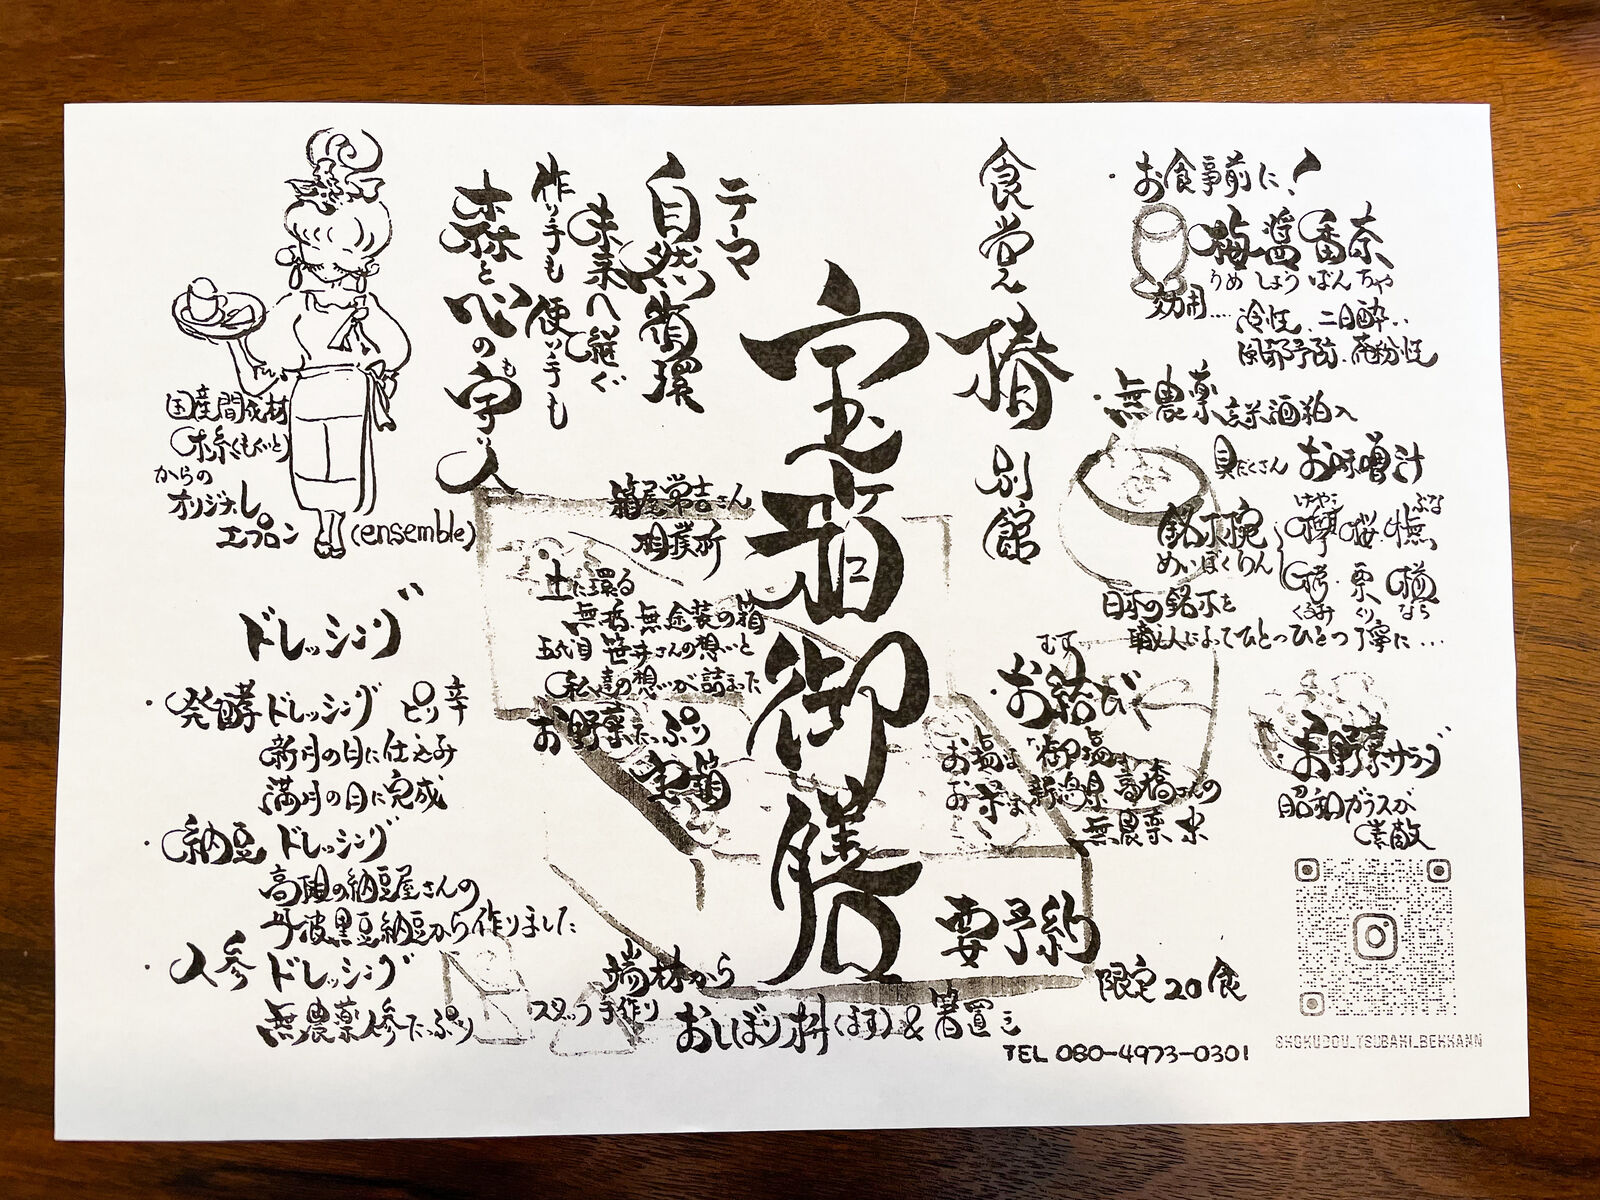 ・お食事前に！
梅醤番茶
うめしょうばんちゃ
効用…冷性、二日酔‥
・無農薬玄米酒粕入
具だくさんお味噌汁
銘木椀
めいぼくわん
欅 桜 橅
けやき ぶな
栗 楢
くるみ くり なら
日本の銘木を
職人によってひとつひとつ丁寧に…
・お結び
むすび
お塩は「御塩」
お米は新潟県高橋さんの
無農薬米
お野菜サラダ
昭和ガラスが
素敵
食堂
椿
別館
宝箱御膳
要予約
限定20食
TEL 080-4973-0301
SHOKUDOU_TSUBAKI_BEKKANN
テーマ
自然循環
未来へ継ぐ
作り手も使い手も
森と心の守人
も
箱屋常吉さん
土に還る
無塗装の箱
五代目 笹井さんの想いと
私達の想いが詰まった
お野菜たっぷり
宝箱
端材から
スタッフ手作り
おしぼり枡(ます)&箸置き
国産間伐材
木糸(もくいと)
からの
オリジナル
エプロン
(ensemble)
ドレッシング
・発酵ドレッシング ピリ辛
新月の日に仕込み
満月の日に完成
・納豆ドレッシング
高阪の納豆屋さんの
丹波黒豆納豆から作りました
・人参ドレッシング
無農薬人参たっぷり